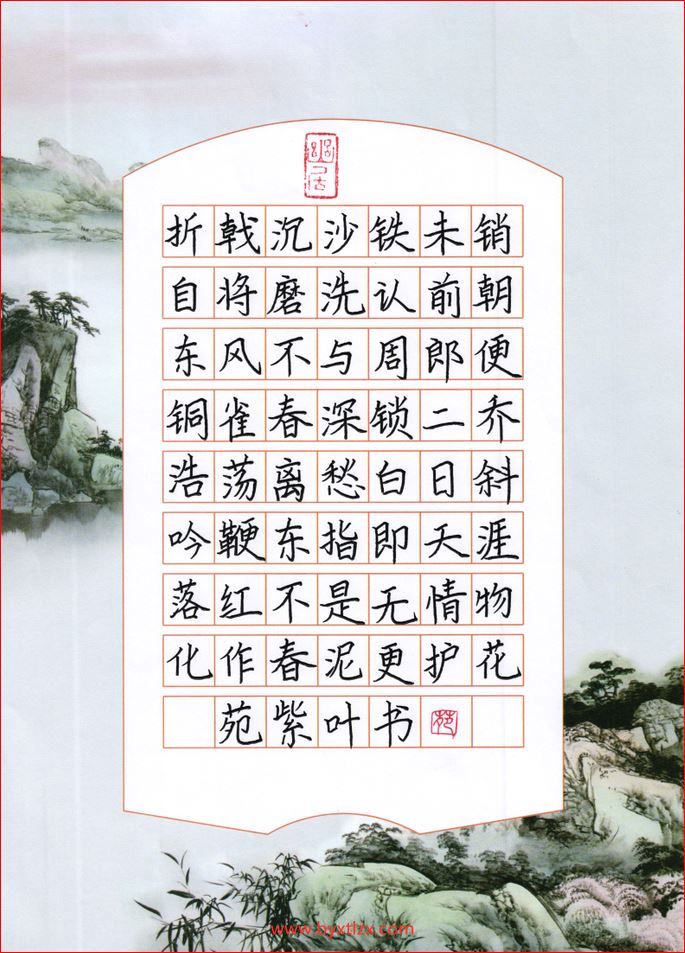 幽居
折戟沉沙铁未销
自将磨洗认前朝
东风不与周郎便
铜雀春深锁二乔
浩荡离愁白日斜
吟鞭东指即天涯
落红不是无情物
化作春泥更护花
苑紫叶书
苑
www.byxtlzx.com